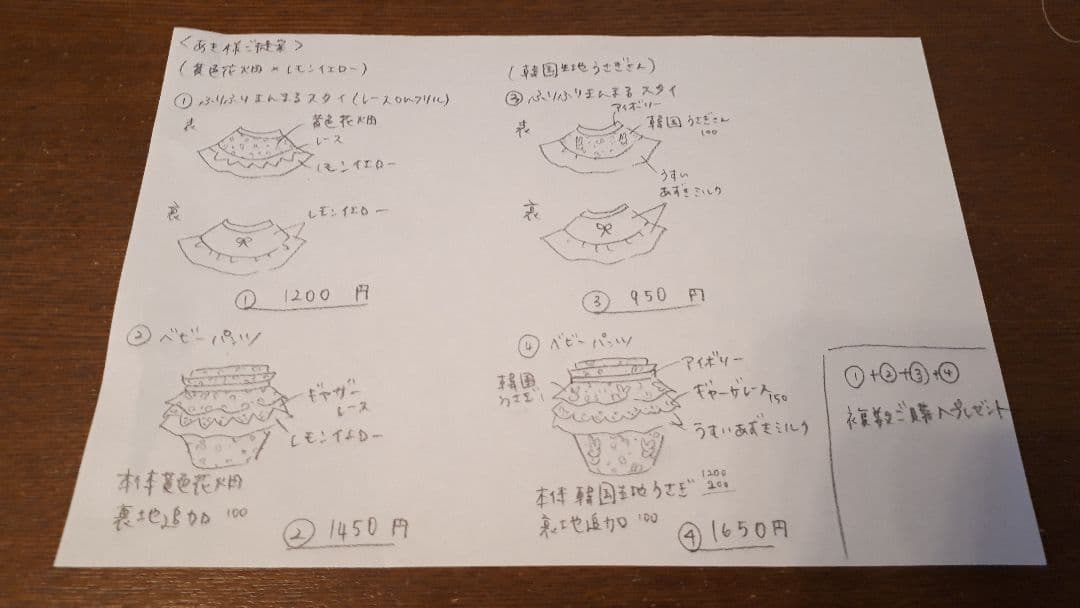 <あき様ご提案>
(黄色花畑×レモンイエロー)
① ふりふりまんまるスタイ(レースonフリル)
表
黄色花畑
レース
レモンイエロー
裏
レモンイエロー
① 1200 円
② ベビーパンツ
ギャザー
レース
レモンイエロー
本体 黄色花畑
裏地追加 100
② 1450円
(韓国生地うさぎさん)
③ ふりふりまんまるスタイ
アイボリー
表
韓国うさぎさん
100
うすい
あずきミルク
裏
③ 950 円
④ ベビーパンツ
韓国
うさぎ
アイボリー
ギャザーレース 150
うすいあずきミルク
本体 韓国生地うさぎ
1200
200
裏地追加 100
④ 1650円
①+②+③+④
複数ご購入プレゼント